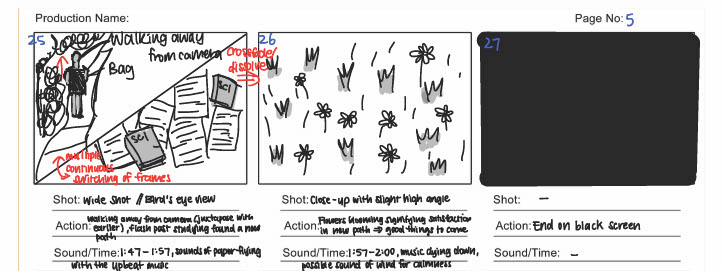 Production Name:
Page No: 5
25
Walking away
from camera
Bag
crossfade/
dissolve
SCI
SCI
multiple
continuous
switching of frames
26
27
Shot: Wide shot // Bird's eye view
Action: Walking away from camera (juxtapose with
earlier), flash past studying found a new
path
Sound/Time: 1:47-1:57, sounds of paper flying
with the upbeat music
Shot: Close-up with slight high angle
Action: Flowers blooming signifying satisfaction
in new path ⇒ good things to come
Sound/Time: 1:57-2:00, music dying down,
possible sound of wind for calmness
Shot: -
Action: End on black screen
Sound/Time: -